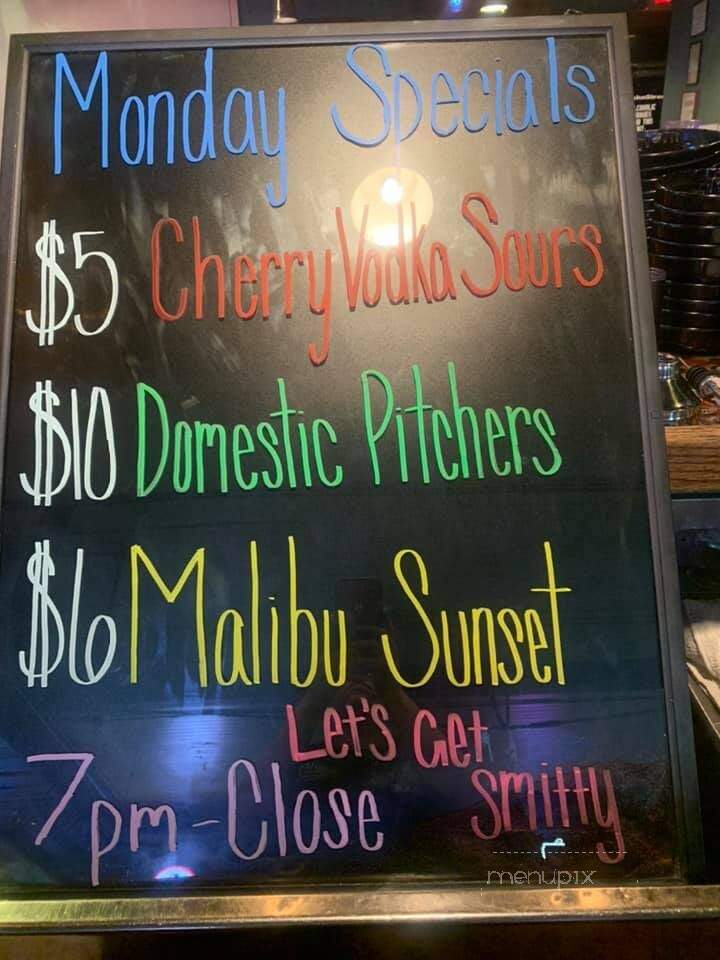 Monday Specials
$5 Cherry Vodka Sours
$10 Domestic Pitchers
$6 Malibu Sunset
Let's Get
7pm-Close Smitty
menupix